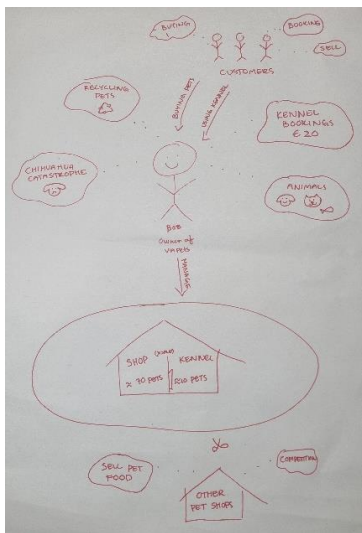 BUYING
BOOKING
SELL
CUSTOMERS
RECYCLING
PETS
BUYING PETS
USING KENNEL
KENNEL
BOOKINGS
€20
CHIHUAHUA
CATASTROPHE
ANIMALS
BOB
OWNER of
VMPETS
MANAGE
SHOP
KENNEL
≈ 70 PETS
PETS
SELL PET
FOOD
COMPETITION
OTHER
PET SHOPS